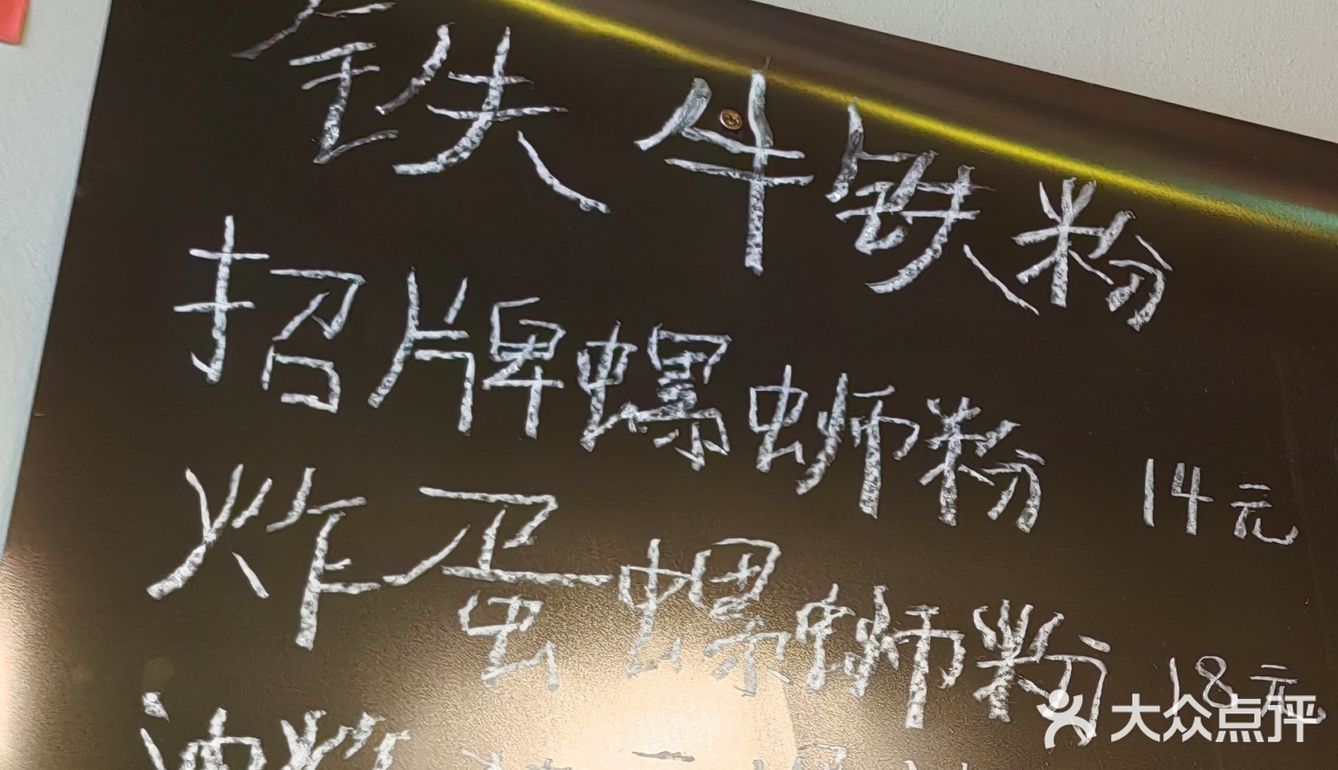 铁牛铁粉
招牌螺蛳粉 14元
炸蛋螺蛳粉 18元
大众点评